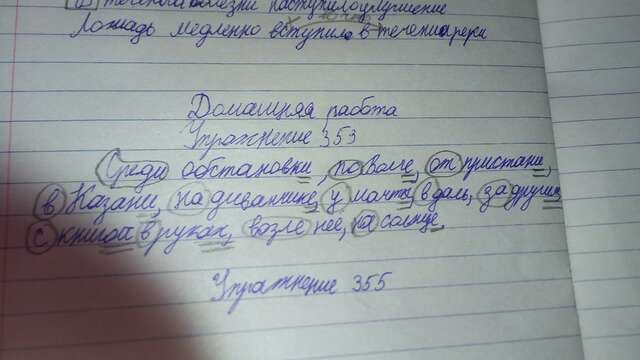 течении болезни наступило улучшение
Лошадь медленно вступила в течение реки
Домашняя работа
Упражнение 353
Среди обстановки, по Волге, от пристани,
в Казани, на диванчике, у мачты, вдаль, за другим,
с книгой в руках, возле неё, на солнце.
Упражнение 355